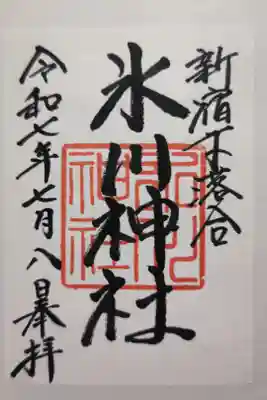 新宿下落合
氷川神社
令和七年七月八日奉拝